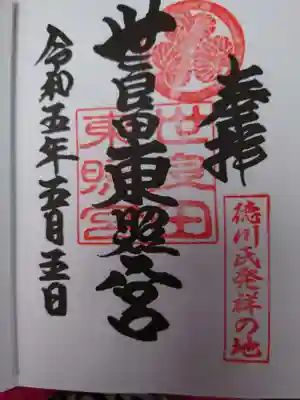 奉拝
徳川氏発祥の地
世良田東照宮
世良田
東照宮
令和五年五月五日